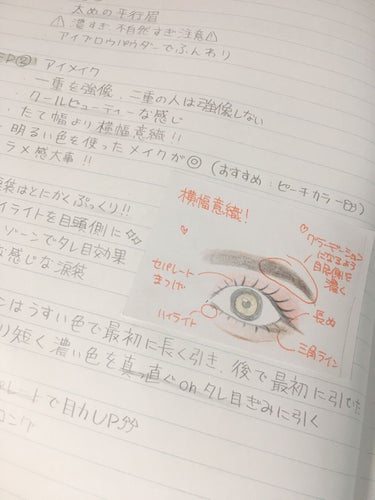 太めの平行眉
⚠濃すぎ 不自然すぎ 注意⚠
アイブロウパウダーでふんわり
② アイメイク
一重を強像、二重の人は強像しない
・クールビューティーな感じ
・たて幅より横幅意識!!
明るい色を使ったメイクが◎(おすすめ:ピーチカラー
ラメ感大事!!
袋はとにかくぷっくり!!
イライトを目頭側に
ゾーンでタレ目効果
な感じな涙袋
横幅意識!
グラデーション
になるよう
目尻側を
濃く
セパレート
まつげ
ハイライト
長め
三角ライン
ンはうすい色で最初に長く引き、後で最初に引いた
り短く濃い色を真っ直ぐ or タレ目ぎみに引く
レートで目力UP